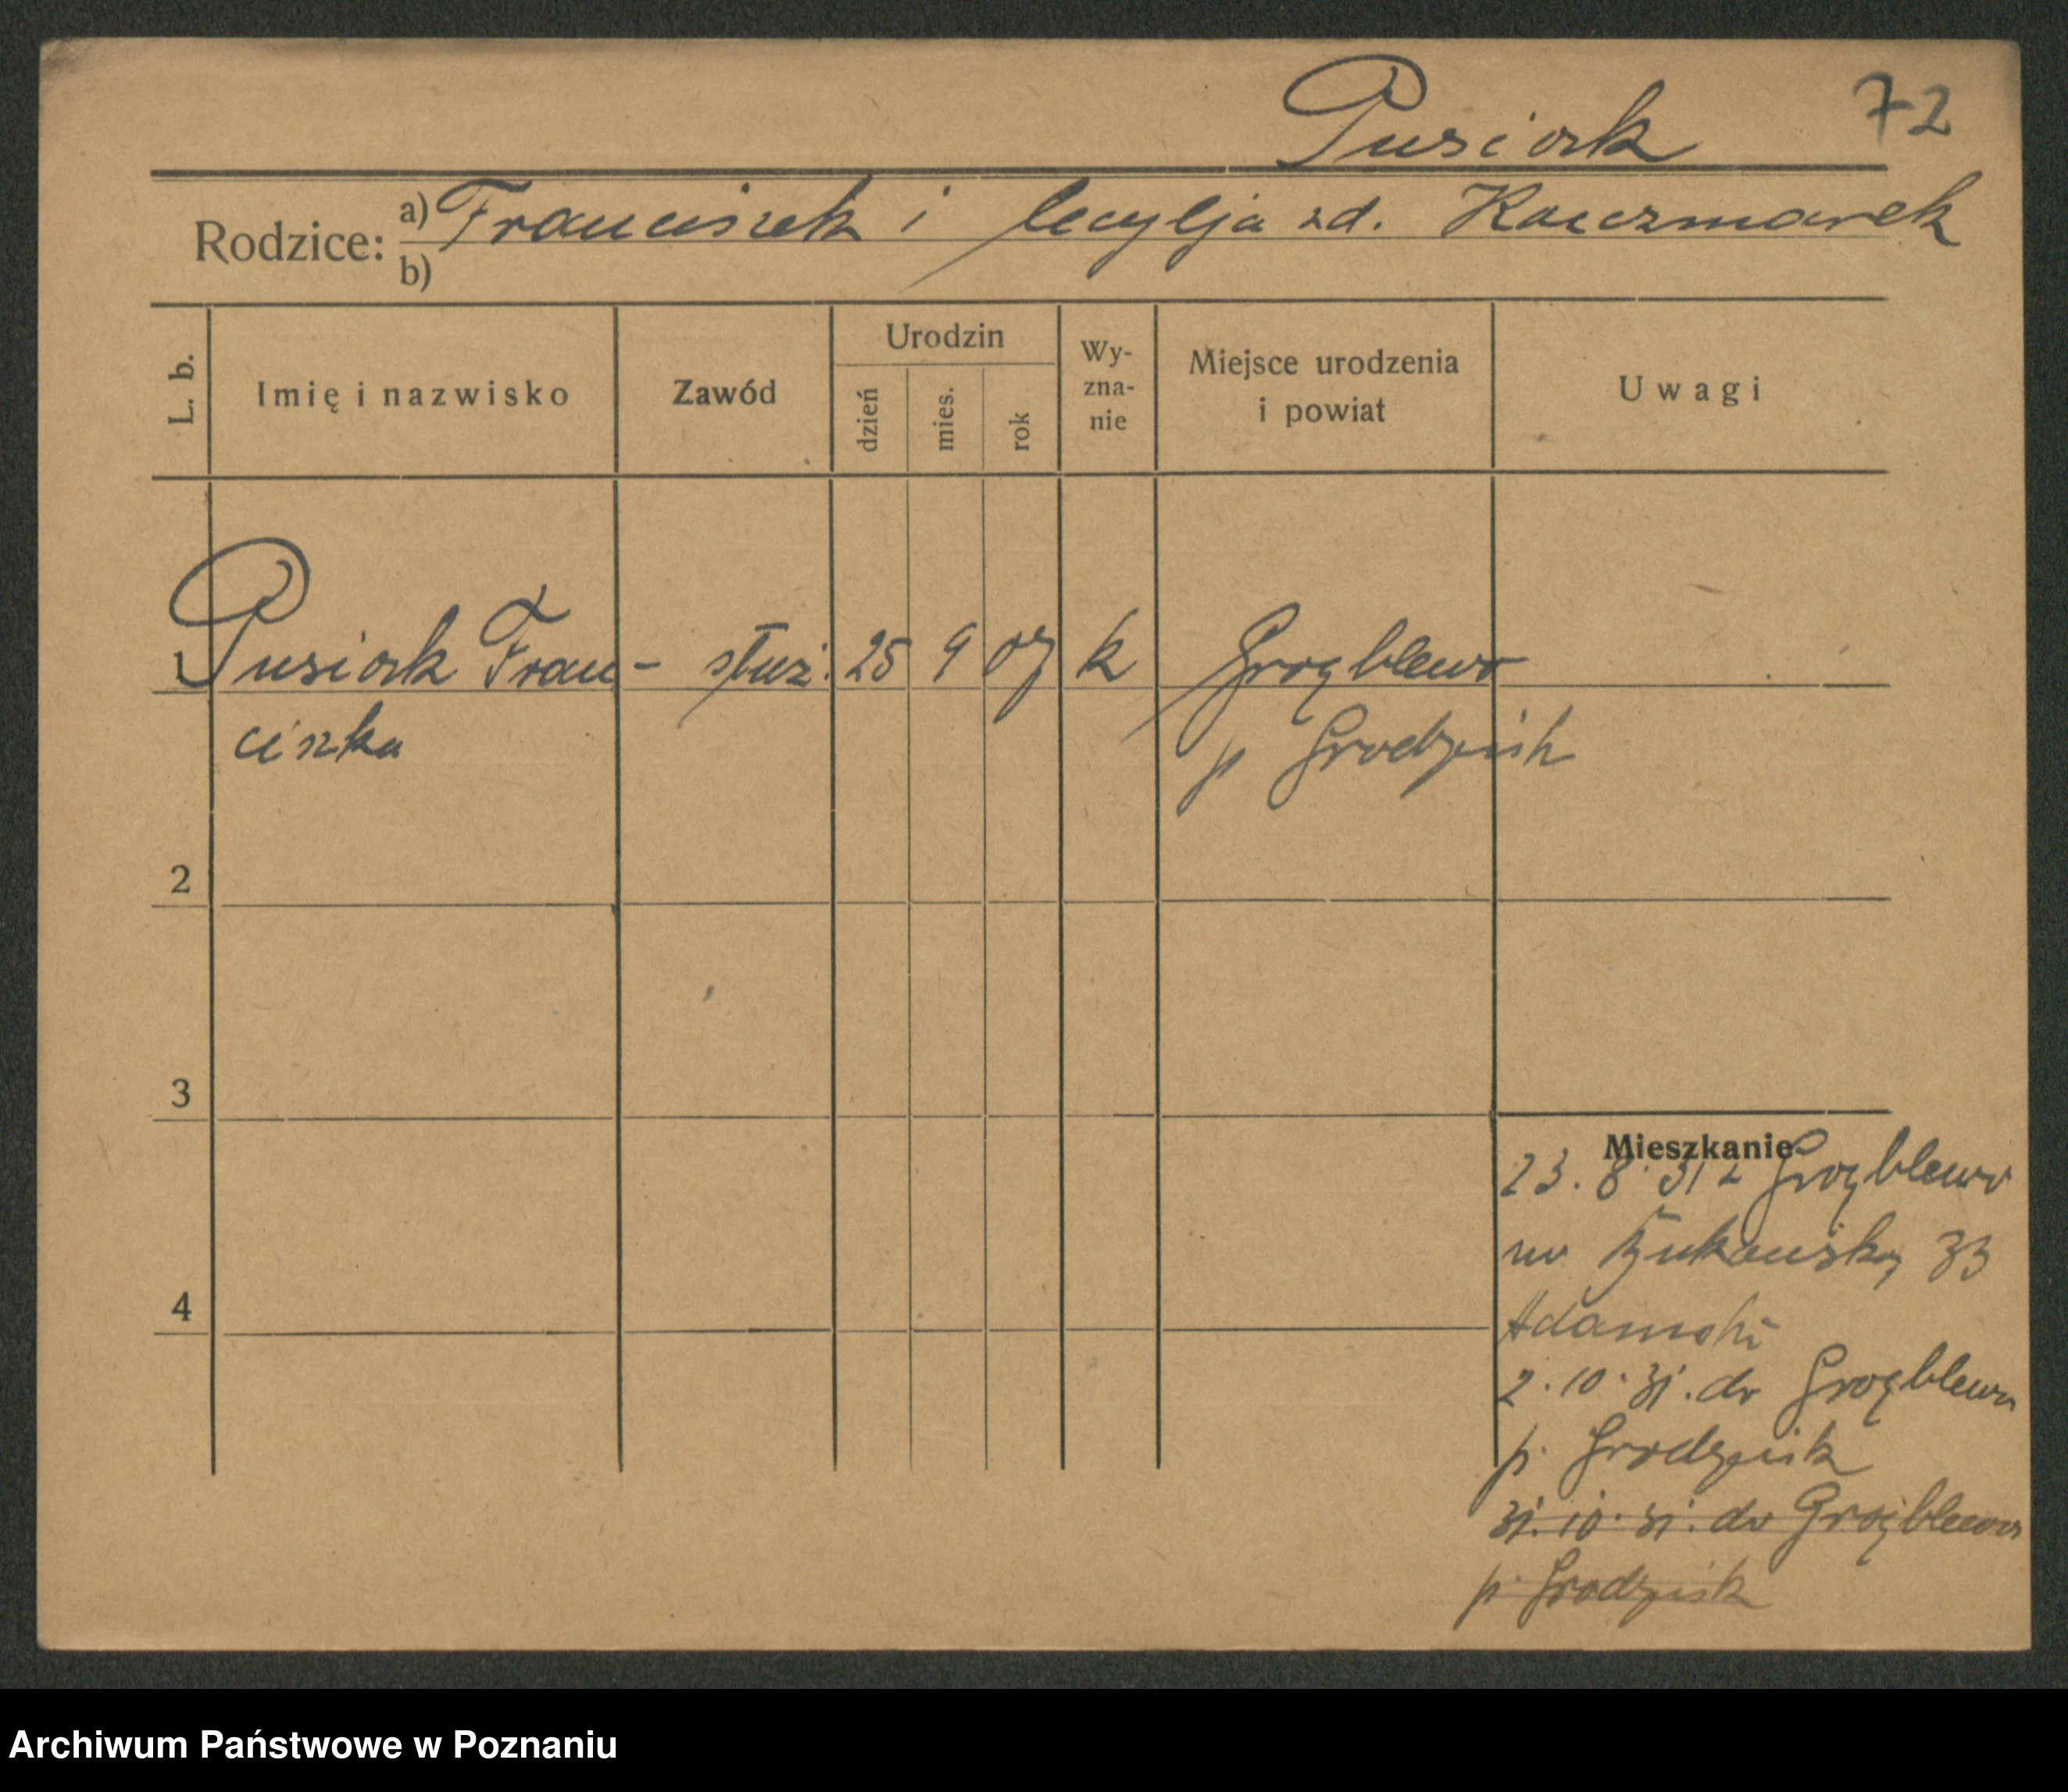 Pusiak 72
Rodzice: a) Franciszek i Cecylja zd. Kaczmarek
b)
L. b. Imię i nazwisko Zawód Urodzin dzień mies. rok Wy-zna-nie Miejsce urodzenia i powiat Uwagi
1 Pusiak Fran- służ. 25 9 07 k Grąblewo
ciszka p Grodzisk
2
3
Mieszkanie
23. 8. 31 z Grąblewo
4
Adamski
2. 10. 31. do Grąblewa
p. Grodzisk
31. 10. 31. do Grąblewa
p. Grodzisk
Archiwum Państwowe w Poznaniu